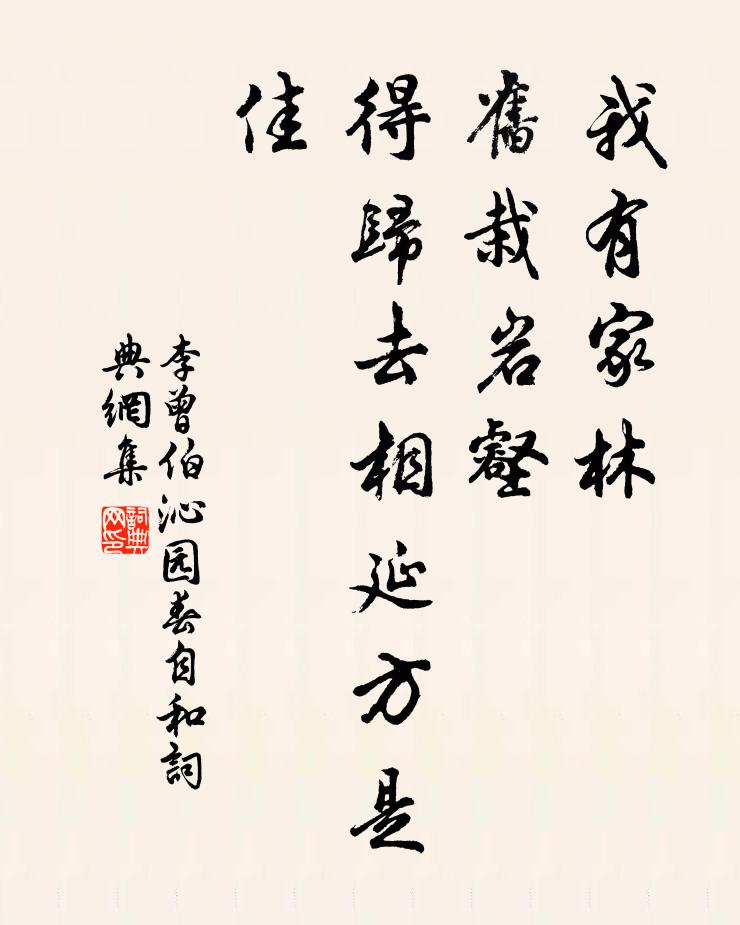 我有家林
舊栽岩壑
得歸去相延方是
佳
李曾伯沁园春自和詞
典網集
詞典
网印